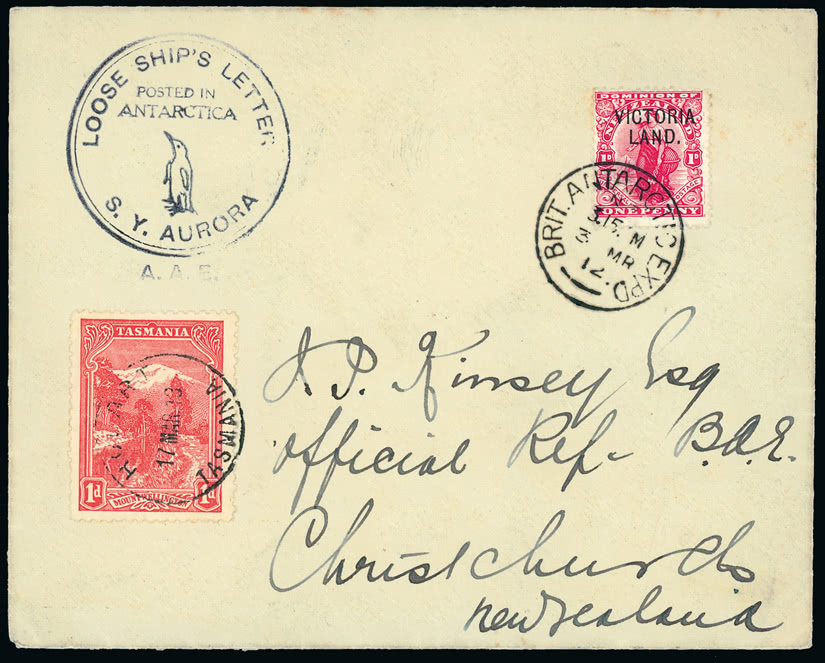 LOOSE SHIP'S LETTER
POSTED IN
ANTARCTICA
S. Y. AURORA
A. A. E.
DOMINION OF
NEW ZEALAND
VICTORIA
LAND.
1D 1D
POSTAGE
ONE PENNY
BRIT. ANTARCTIC EXPD
3 MR
12
TASMANIA
HOBART
17 MAR 13
TASMANIA
1d 1d
MOUNT WELLINGTON
J. J. Kinsey Esq
Official Rep- B.A.E.
Christchurch
New Zealand